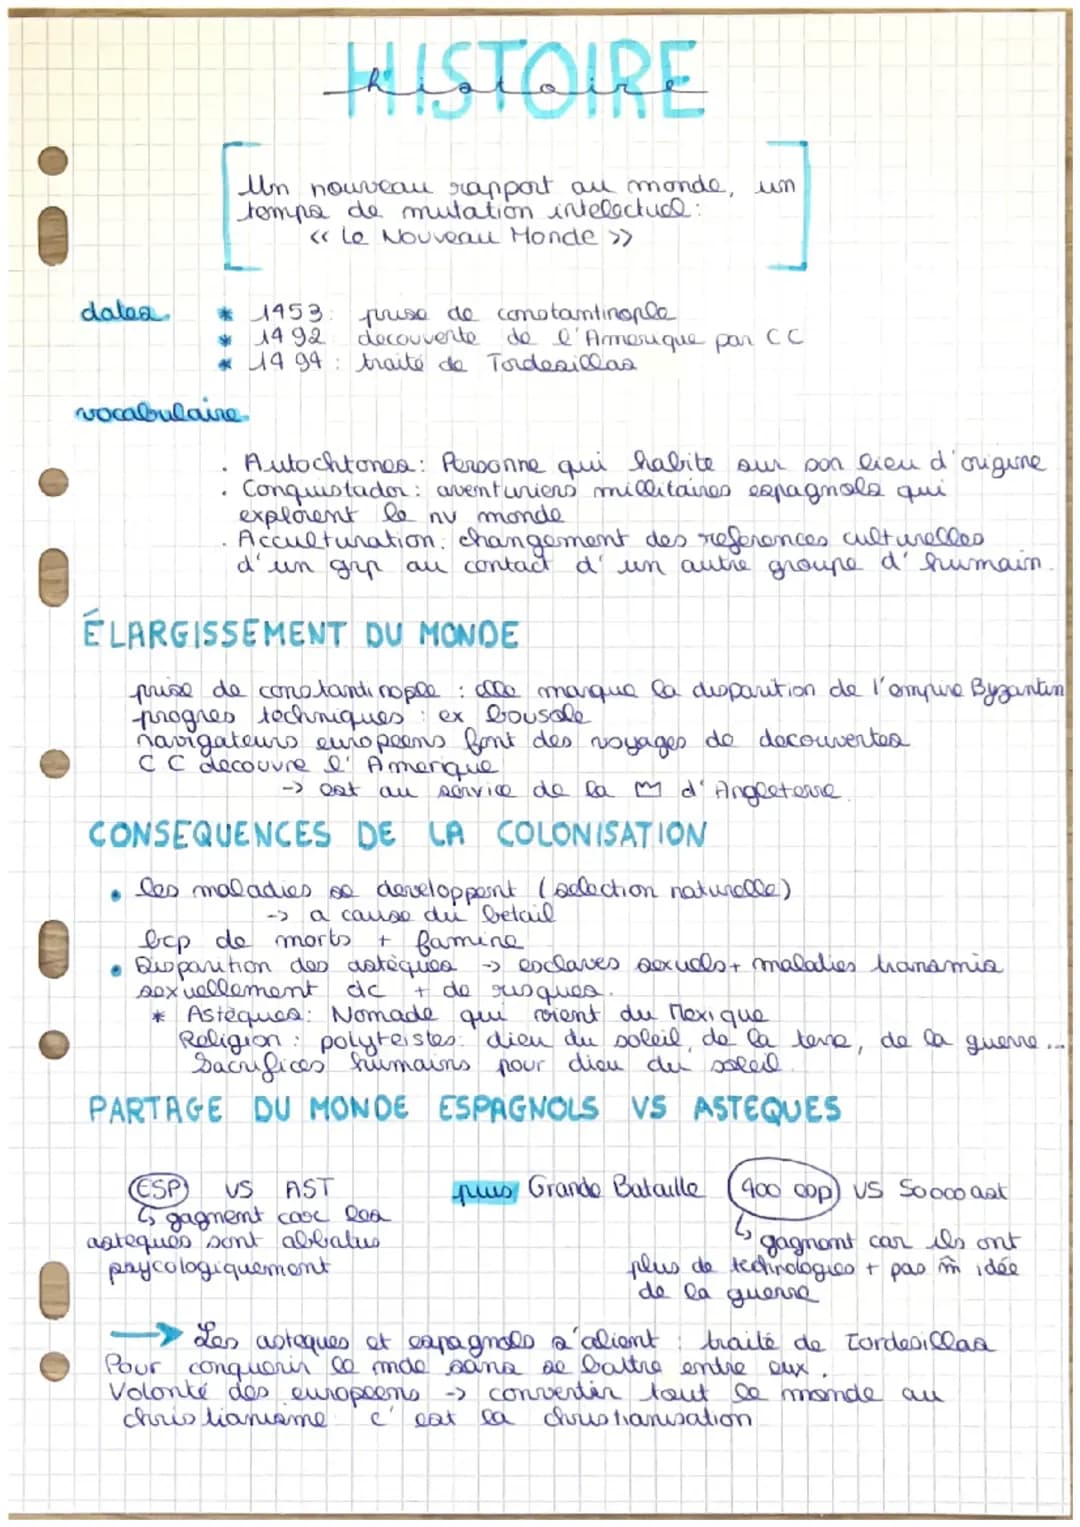 HISTOIRE
histoire
Un nouveau rapport au monde, un
temps de mutation intelectuel:
<< Le Nouveau Monde >>
dates
* 1453: prise de constantinople
* 1492 decouverte de l'Amerique par CC
* 1494: traité de Tordesillas
vocabulaire
. Autochtones: Personne qui habite sur son lieu d'origine
. Conquistador: aventuriers millitaires espagnols qui
explorent le nv monde
. Acculturation: changement des references culturelles
d'un grp au contact d'un autre groupe d'humain.
ÉLARGISSEMENT DU MONDE
prise de constantinople : elle marque la disparition de l'empire Byzantin
progres techniques : ex bousole
navigateurs europeens font des voyages de decouvertes
CC decouvre l'Amerique
-> est au service de la d'Angleterre.
CONSEQUENCES DE LA COLONISATION
• les maladies se developpent (selection naturelle)
-> a cause du betail
bcp de morts + famine
• Disparition des asteques -> esclaves sexuels + maladies transmis
sexuellement dc + de risques.
* Asteques: Nomade qui vient du Mexique
Religion : polyteistes: dieu du soleil, de la terre, de la guerre...
Sacrifices humains pour dieu du soleil.
PARTAGE DU MONDE ESPAGNOLS VS ASTEQUES
ESP VS AST
gagnent car les
asteques sont abbatus
psycologiquement
puis Grande Bataille 400 esp VS 50000 ast
gagnent car ils ont
plus de technologies + pas m̂ idée
de la guerre
→ Les asteques et espagnols s'alient : traité de Tordesillas
Pour conquerir le mde sans se battre entre eux.
Volonté des europeens -> convertir tout le monde au
christianisme c'est la christianisation